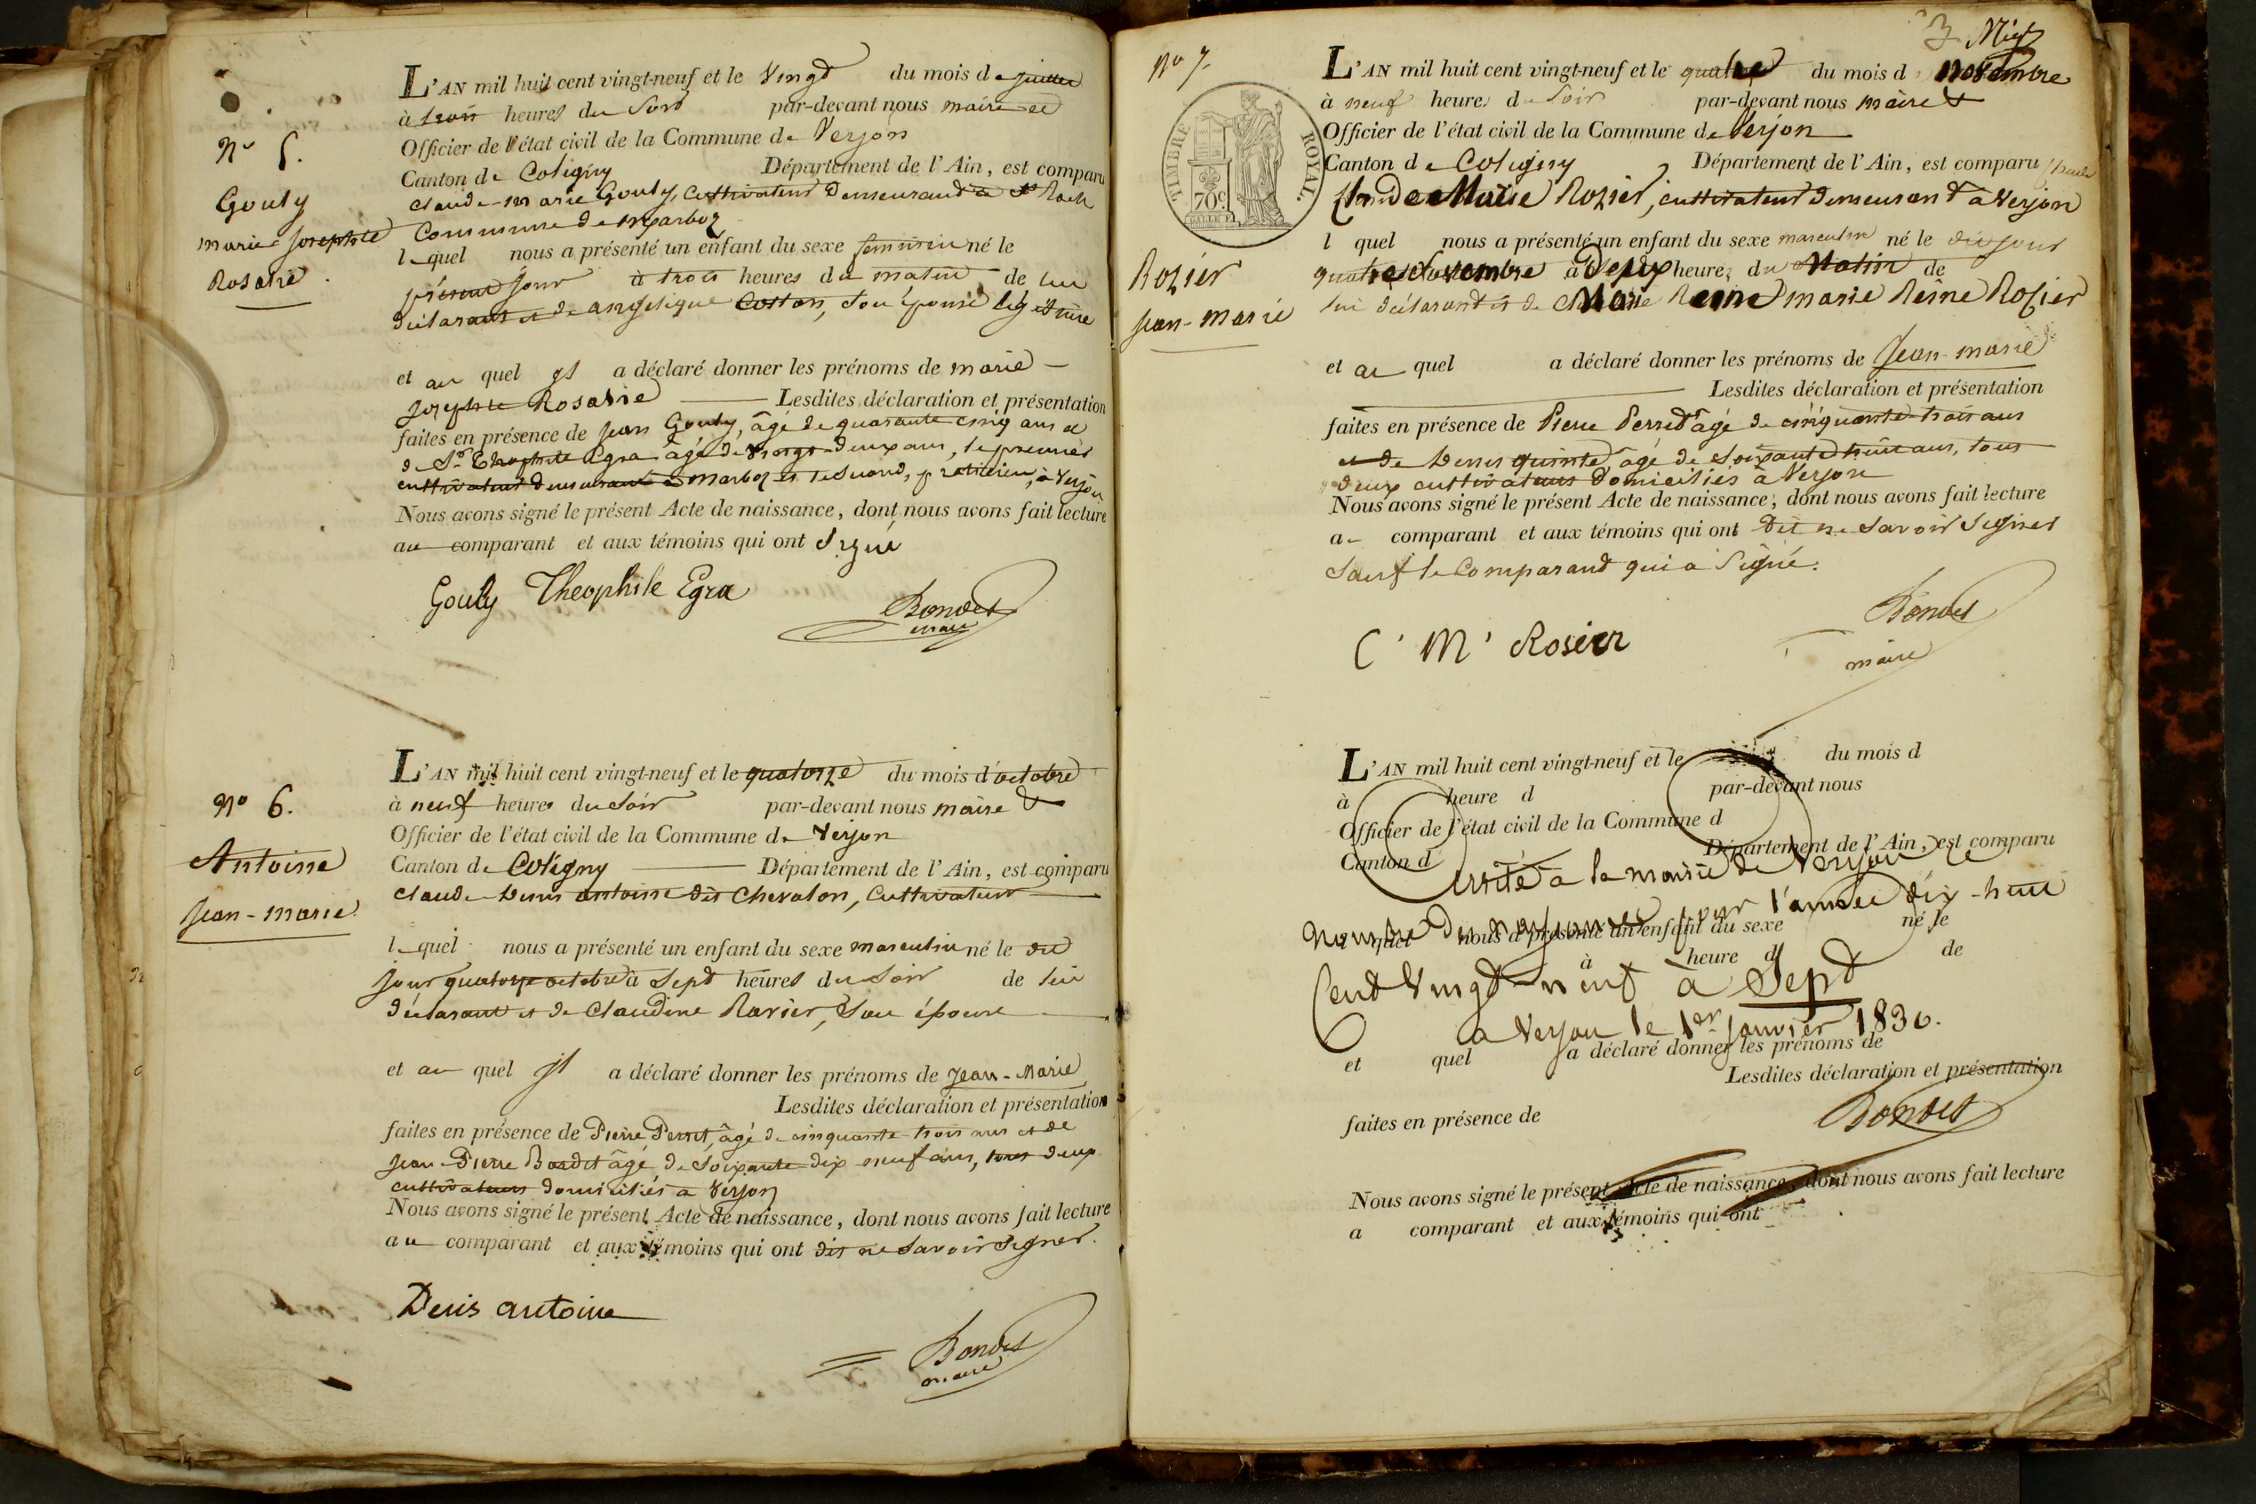 N° 5.
Gouly
marie Josephte
Rosalie
L'AN mil huit cent vingt-neuf et le Vingt du mois de juillet
à trois heures du Soir par-devant nous maire et
Officier de l'état civil de la Commune de Verjon
Canton de Coligny Département de l'Ain, est comparu
claude-marie Gouly, Cultivateur demeurand a St Roch
Commune de marboz
lequel nous a présenté un enfant du sexe feminin né le
présent jour à trois heures du matin de lui
déclarant et de angelique Costan, Son épouse légitime
et au quel il a déclaré donner les prénoms de marie
josephte Rosalie Lesdites déclaration et présentation
faites en présence de jean Gouly, âgé de quarante cinq ans et
de Sr Theophile Egra âgé de vingt-deux ans, le premier
cultivateur demeurant a Marboz et le Second, praticien, à Verjon
Nous avons signé le présent Acte de naissance, dont nous avons fait lecture
au comparant et aux témoins qui ont Signé
Gouly Theophile Egra
Bondet
maire
N° 6.
Antoine
Jean-marie
L'AN mil huit cent vingt-neuf et le quatorze du mois d'octobre
à neuf heures du Soir par-devant nous maire &
Officier de l'état civil de la Commune de Verjon
Canton de Coligny Département de l'Ain, est comparu
claude Denis antoine dit Chevalon, Cultivateur
lequel nous a présenté un enfant du sexe masculin né le dit
jour quatorze octobre à Sept heures du Soir de lui
déclarant et de Claudine Ravier, Son épouse
et au quel il a déclaré donner les prénoms de Jean-Marie
Lesdites déclaration et présentation
faites en présence de Pierre Perret, âgé de cinquante trois ans et de
Jean-Pierre Bondet âgé de Soixante dix neuf ans, tous deux
cultivateurs domiciliés a Verjon
Nous avons signé le présent Acte de naissance, dont nous avons fait lecture
au comparant et aux témoins qui ont dit ne Savoir Signer.
Denis antoine
Bondet
maire
3
N° 7.
TIMBRE ROYAL
70c
Rozier
Jean-marie
L'AN mil huit cent vingt-neuf et le quatre du mois d novembre
à neuf heures du Soir par-devant nous maire &
Officier de l'état civil de la Commune de Verjon
Canton de Coligny Département de l'Ain, est comparu
Claude Marie Rozier, cultivateur demeurant à Verjon
l quel nous a présenté un enfant du sexe masculin né le dit jour
quatre Novembre à Deux heures du Matin de
lui déclarant et de Marie Reine marie Reine Rozier
et au quel a déclaré donner les prénoms de Jean-marie
Lesdites déclaration et présentation
faites en présence de Pierre Perret âgé de cinquante-trois ans
et de Denis quinte âgé de Soixante huit ans, tous
deux cultivateurs Domiciliés à Verjon
Nous avons signé le présent Acte de naissance, dont nous avons fait lecture
au comparant et aux témoins qui ont Dit ne Savoir Signer
Sauf le Comparand qui a Signé.
C M Rosier
Bondet
maire
L'AN mil huit cent vingt-neuf et le du mois d
à heure d par-devant nous
Officier de l'état civil de la Commune d
Canton d Département de l'Ain, est comparu
Arrêté a la mairie de Verjon le
nombre des naissances pour l'année dix-huit
l quel nous a présenté un enfant du sexe né le
à heure d de
Cent Vingt-neuf à Sept
a Verjon le 1er janvier 1830.
et quel a déclaré donner les prénoms de
Lesdites déclaration et présentation
faites en présence de
Bondet
Nous avons signé le présent Acte de naissance, dont nous avons fait lecture
a comparant et aux témoins qui ont